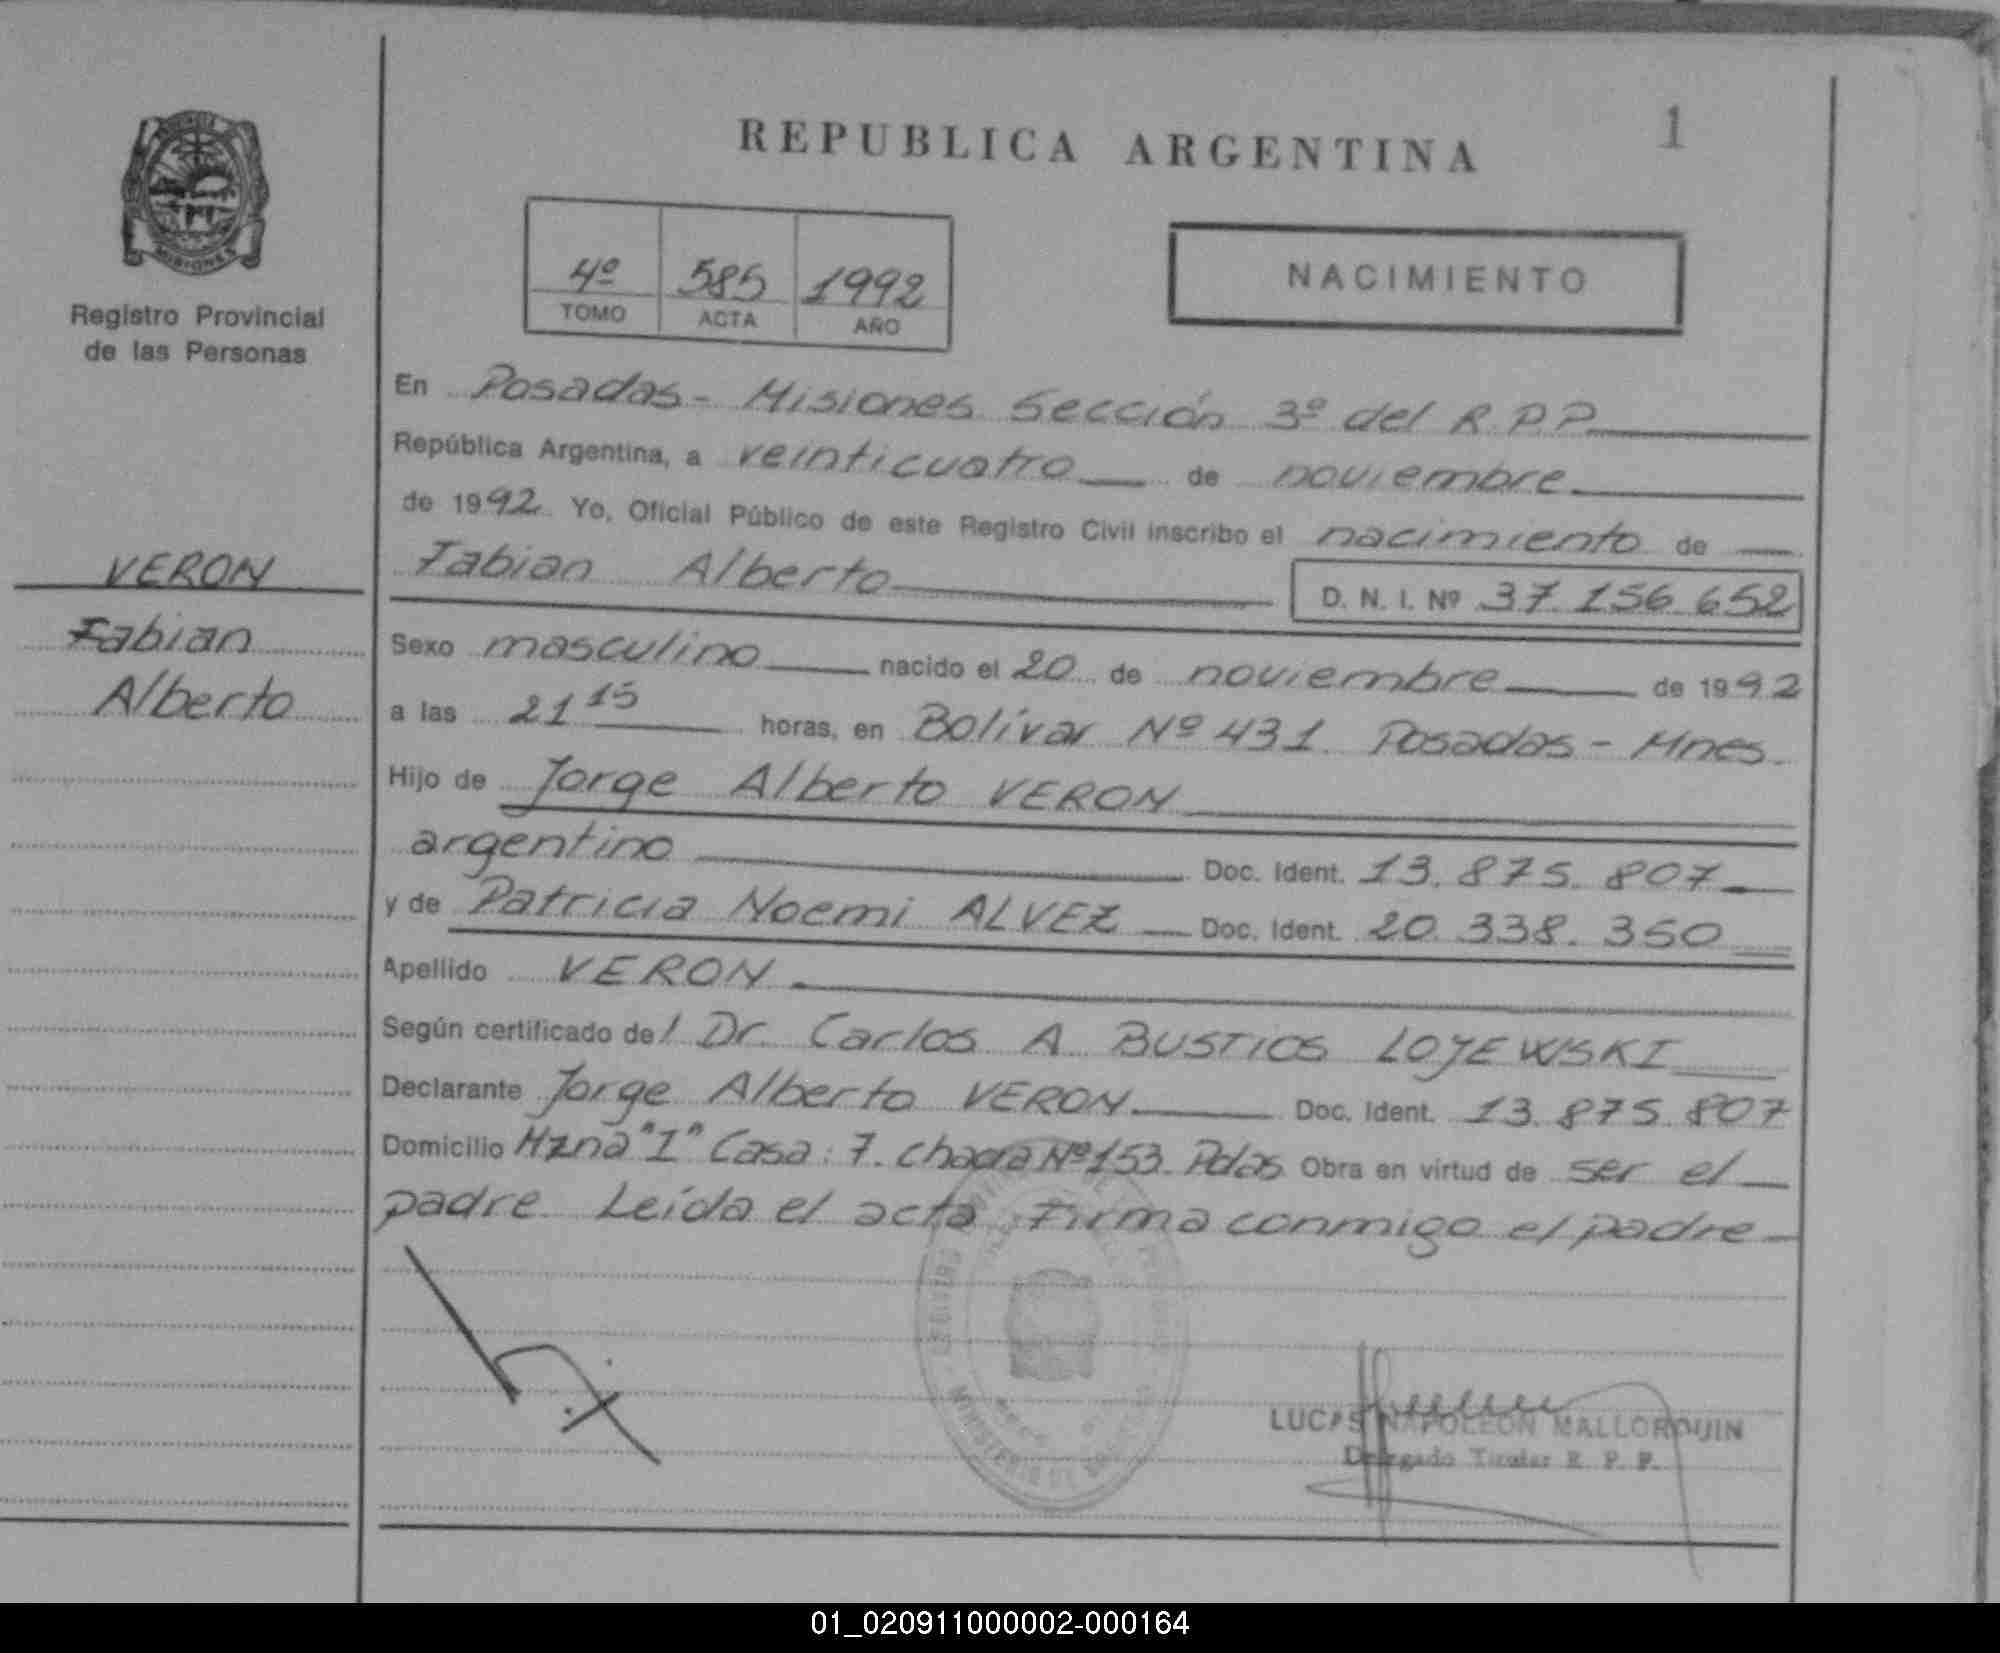 REPUBLICA ARGENTINA
1
PROVINCIA
MISIONES
Registro Provincial
de las Personas
4º 585 1992
TOMO ACTA AÑO
NACIMIENTO
VERON
Fabian
Alberto
En Posadas - Misiones Sección 3º del R.P.P.
República Argentina, a veinticuatro de noviembre
de 1992. Yo, Oficial Público de este Registro Civil inscribo el nacimiento de
Fabian Alberto D. N. I. Nº 37.156.652
Sexo masculino nacido el 20 de noviembre de 1992
a las 21 15 horas, en Bolívar Nº 431. Posadas - Mnes.
Hijo de Jorge Alberto VERON
argentino Doc. Ident. 13.875.807
y de Patricia Noemi ALVEZ Doc. Ident. 20.338.350
Apellido VERON
Según certificado del Dr. Carlos A. BUSTIOS LOJEWSKI
Declarante Jorge Alberto VERON Doc. Ident. 13.875.807
Domicilio Mzna "I" Casa: 7. chacra Nº 153. Pdas Obra en virtud de ser el
padre. Leída el acta firma conmigo el padre
LUCAS NAPOLEON MALLORQUIN
Delegado Titular R. P. P.
01_020911000002-000164